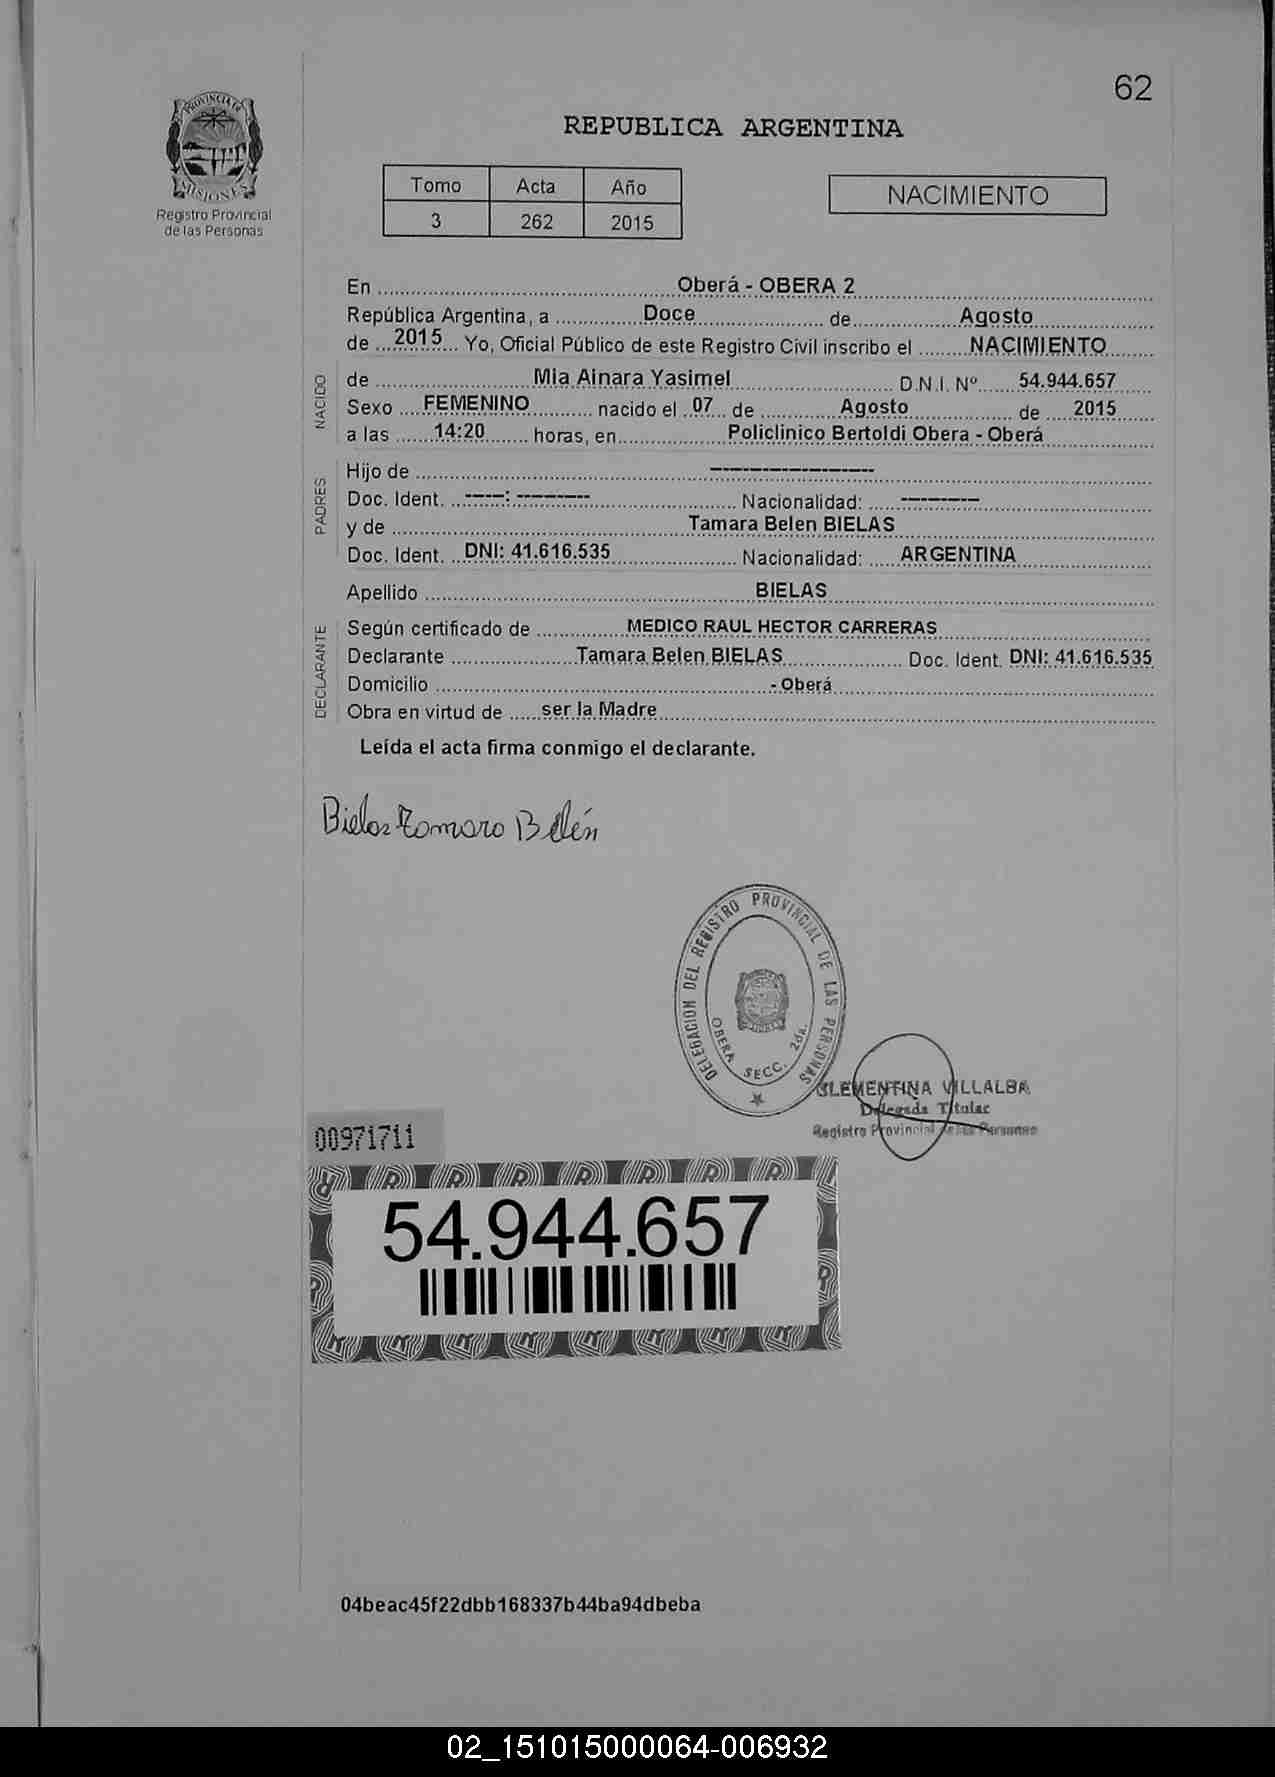 62
PROVINCIA DE
MISIONES
Registro Provincial
de las Personas
REPUBLICA ARGENTINA
Tomo Acta Año
3 262 2015
NACIMIENTO
En Oberá - OBERA 2
República Argentina, a Doce de Agosto
de 2015 Yo, Oficial Público de este Registro Civil inscribo el NACIMIENTO
NACIDO
de Mia Ainara Yasimel D.N.I. Nº 54.944.657
Sexo FEMENINO nacido el 07 de Agosto de 2015
a las 14:20 horas, en Policlinico Bertoldi Obera - Oberá
PADRES
Hijo de --------------------
Doc. Ident. -----: --------- Nacionalidad: ----------
y de Tamara Belen BIELAS
Doc. Ident. DNI: 41.616.535 Nacionalidad: ARGENTINA
Apellido BIELAS
DECLARANTE
Según certificado de MEDICO RAUL HECTOR CARRERAS
Declarante Tamara Belen BIELAS Doc. Ident. DNI: 41.616.535
Domicilio - Oberá
Obra en virtud de ser la Madre
Leída el acta firma conmigo el declarante.
Bielas Tamara Belén
DELEGACION DEL REGISTRO PROVINCIAL DE LAS PERSONAS
OBERA SECC. 2da.
CLEMENTINA VILLALBA
Delegada Titular
Registro Provincial de las Personas
00971711
54.944.657
04beac45f22dbb168337b44ba94dbeba
02_151015000064-006932